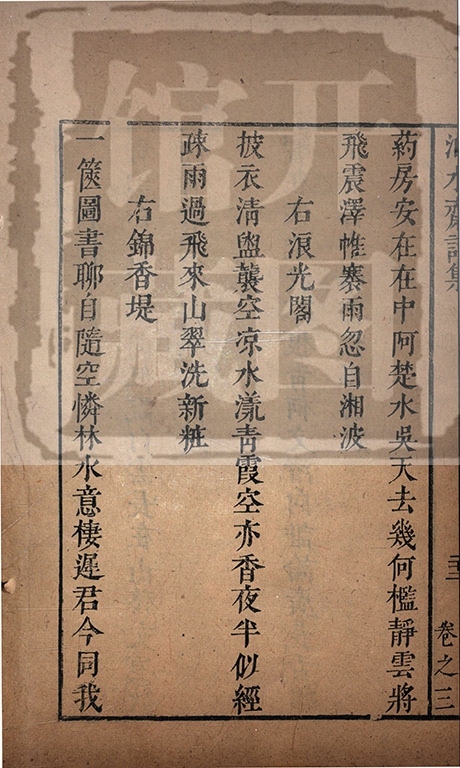 藥房安在在中阿楚水吳天去幾何檻靜雲將
飛震澤帷褰雨忽自湘波
右浪光閣
披衣清盥襲空凉水漾靑霞空亦香夜半似經
疎雨過飛來山翠洗新粧
右錦香堤
一篋圖書聊自隨空憐林水意棲遲君今同我
卷之三
开图
馆藏